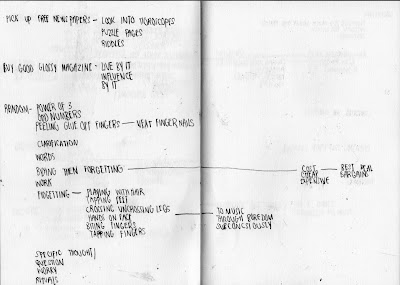 PICK UP FREE NEWSPAPERS - LOOK INTO HOROSCOPES
PUZZLE PAGES
RIDDLES
BUY GOOD GLOSSY MAGAZINE - LIVE BY IT
INFLUENCE
BY IT
RANDOM - POWER OF 3
ODD NUMBERS
PEELING GLUE OFF FINGERS — NEAT FINGER NAILS
CLARIFICATION
WORDS
BUYING THEN FORGETTING — COST — BEST DEAL
CHEAP BARGAINS
EXPENSIVE
WORK
FIDGETING — PLAYING WITH HAIR
TAPPING FEET
CROSSING UNCROSSING LEGS — TO MUSIC
HANDS ON FACE THROUGH BOREDOM
BITING FINGERS SUBCONSCIOUSLY
TAPPING FINGERS
SPECIFIC THOUGHT/
QUESTION
WORRY
RITUALS